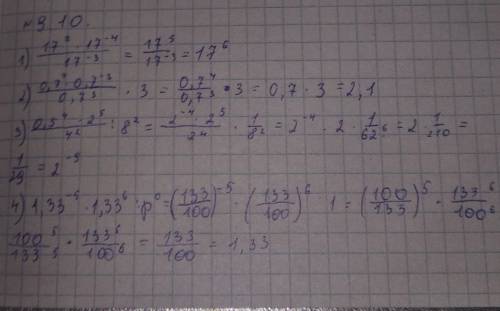 №9.10.
1) (17^8 · 17^-4)/(17^-3) = 17^3/17^-3 = 17^6
2) (0,7^7 · 0,7^-3)/0,7^3 · 3 = 0,7^4/0,7^3 · 3 = 0,7 · 3 = 2,1
3) (0,5^4 · 2^5)/4^2 : 8^2 = (2^-4 · 2^5)/2^4 · 1/8^2 = 2^-4 · 2 · 1/62^6 = 2 · 1/2^10 =
1/29 = 2^-9
4) 1,33^-5 · 1,33^6 : p^0 = (133/100)^-5 · (133/100)^6 · 1 = (100/133)^5 · 133^6/100^6
100^5/133^5 · 133^6/100^6 = 133/100 = 1,33